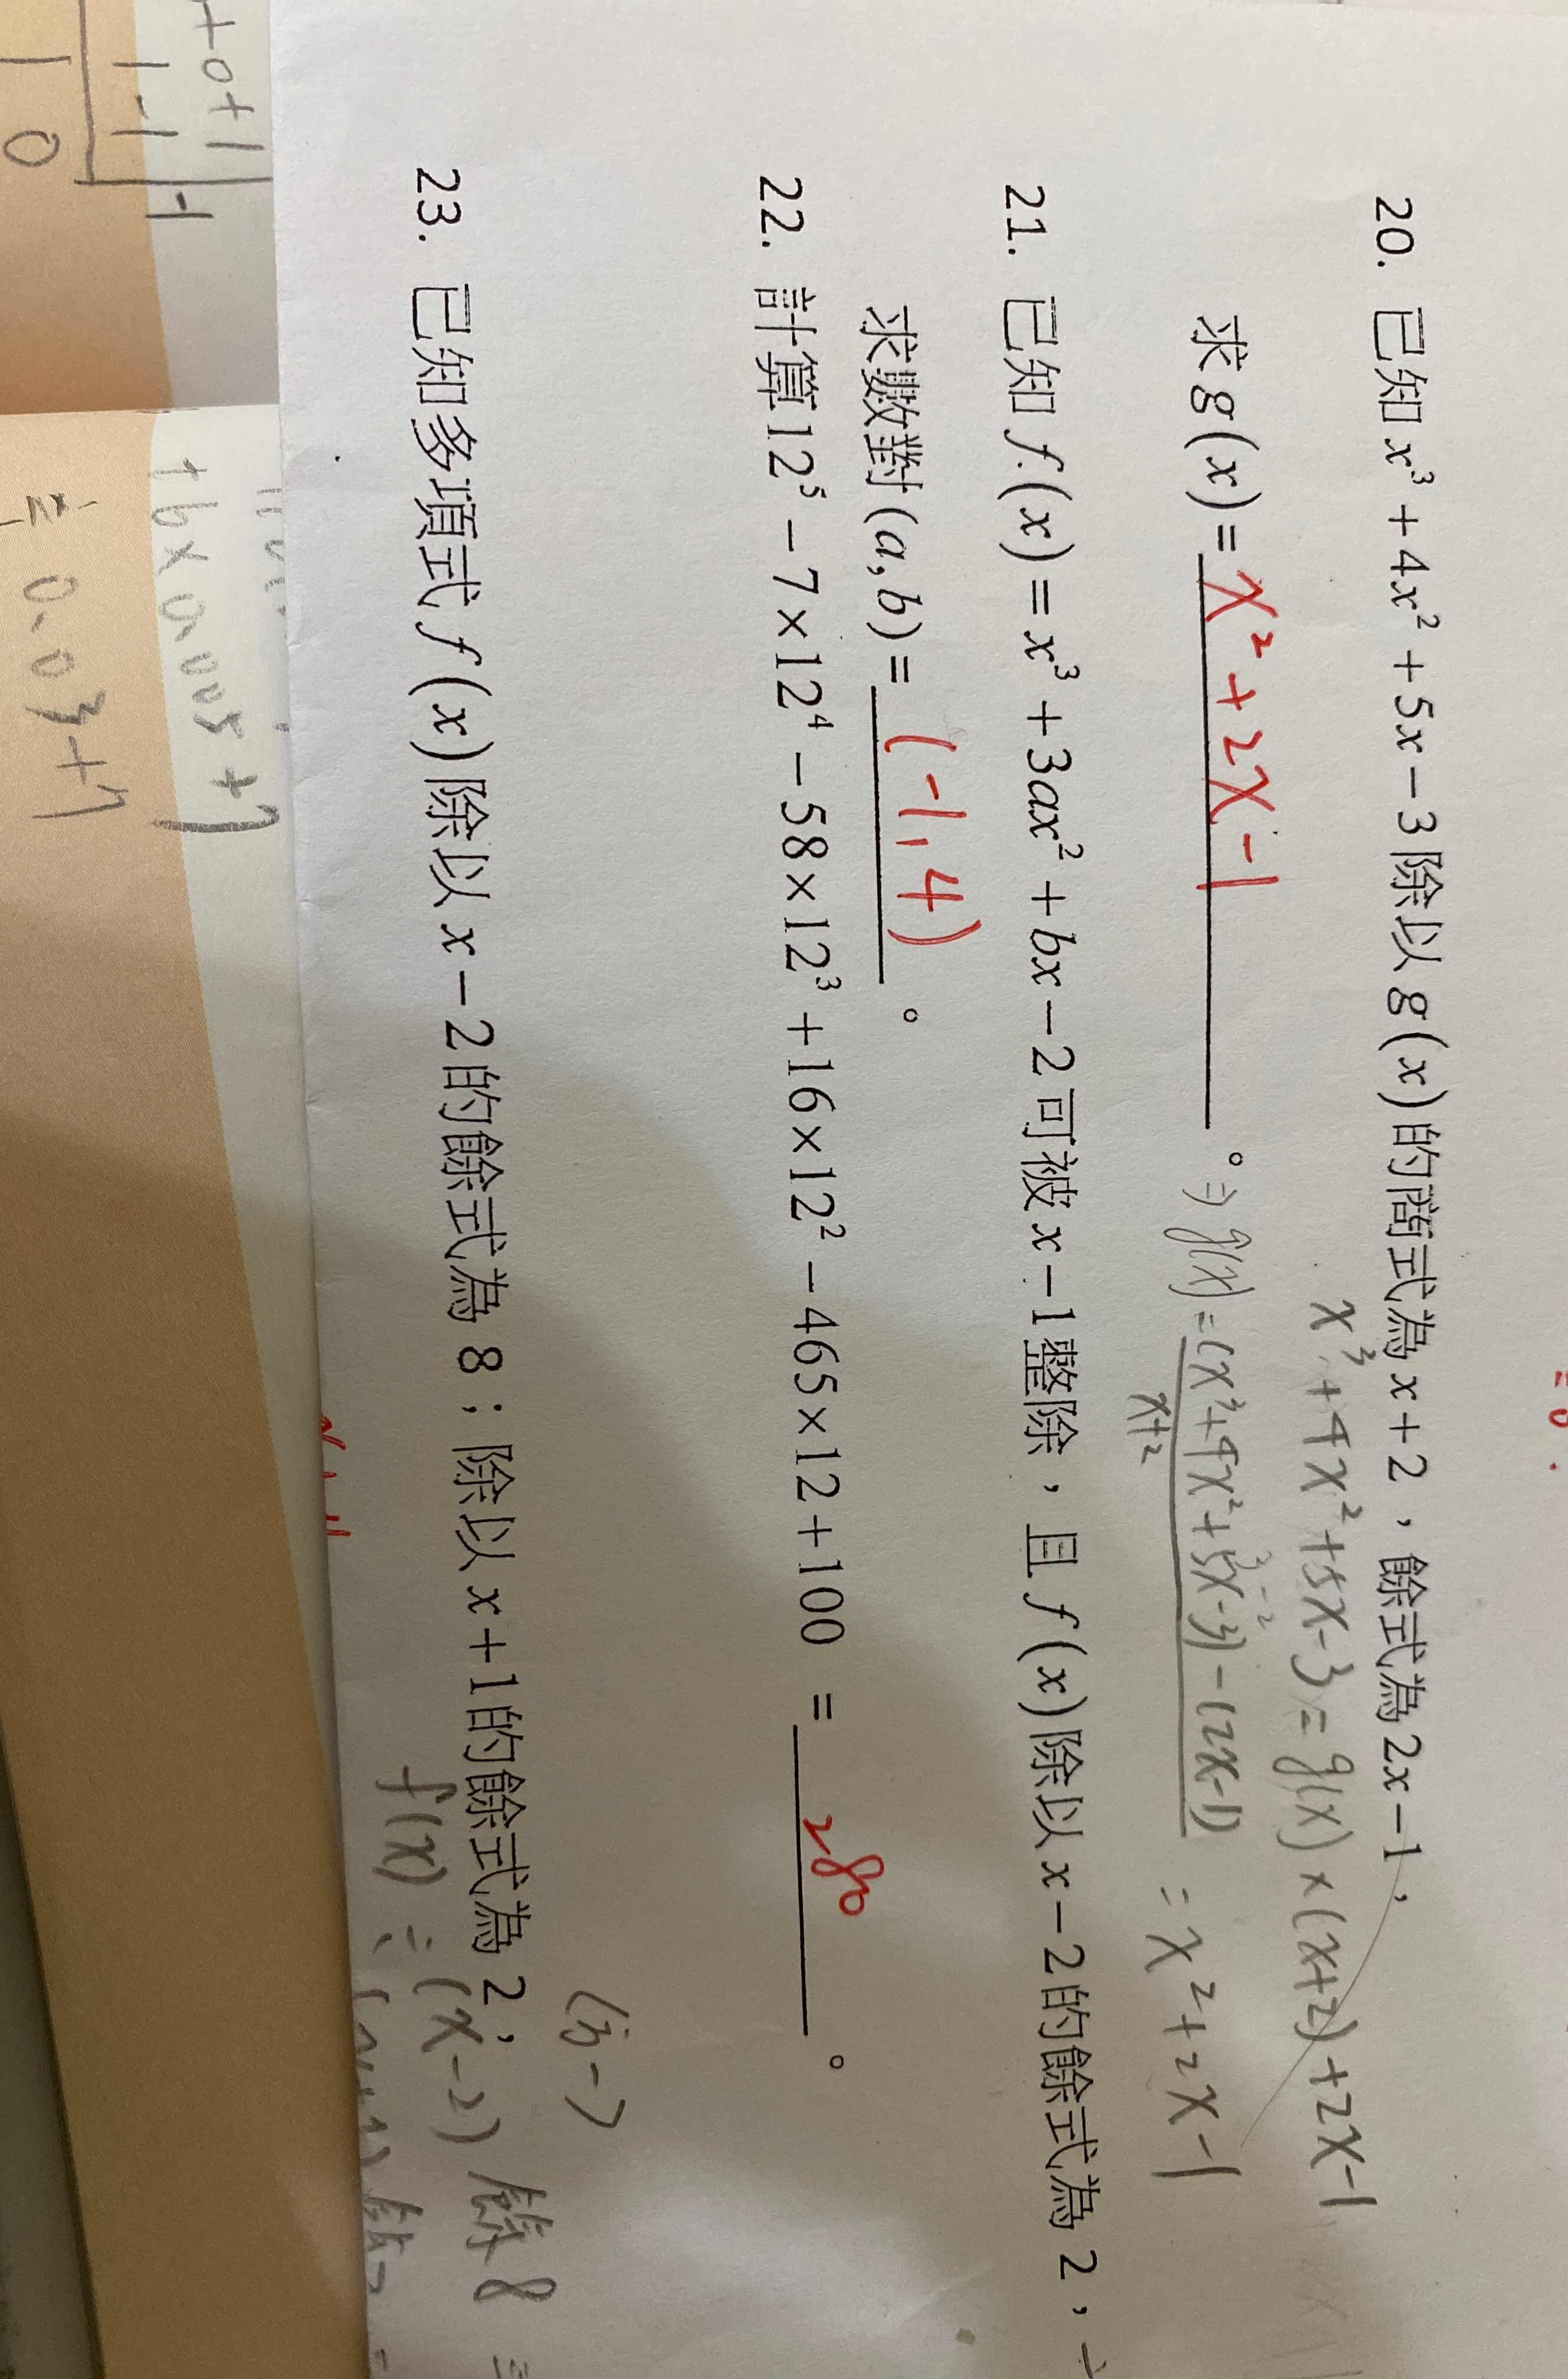 20. 已知 x³ + 4x² + 5x − 3 除以 g(x) 的商式為 x + 2，餘式為 2x − 1，
x³ + 4x² + 5x − 3 = g(x) × (x+2) + 2x − 1
求 g(x) = x² + 2x − 1 。 ⇒ g(x) = (x³ + 4x² + 5x − 3) − (2x − 1)
x+2
= x² + 2x − 1
21. 已知 f(x) = x³ + 3ax² + bx − 2 可被 x − 1 整除，且 f(x) 除以 x − 2 的餘式為 2，
求數對 (a, b) = (−1, 4) 。
22. 計算 12⁵ − 7×12⁴ − 58×12³ + 16×12² − 465×12 + 100 = 280 。
23. 已知多項式 f(x) 除以 x − 2 的餘式為 8；除以 x + 1 的餘式為 2，
f(x) = (x−2) 餘 8
+0+1
1 -1 -1
1 0
+6×0.005+7
= 0.03+7